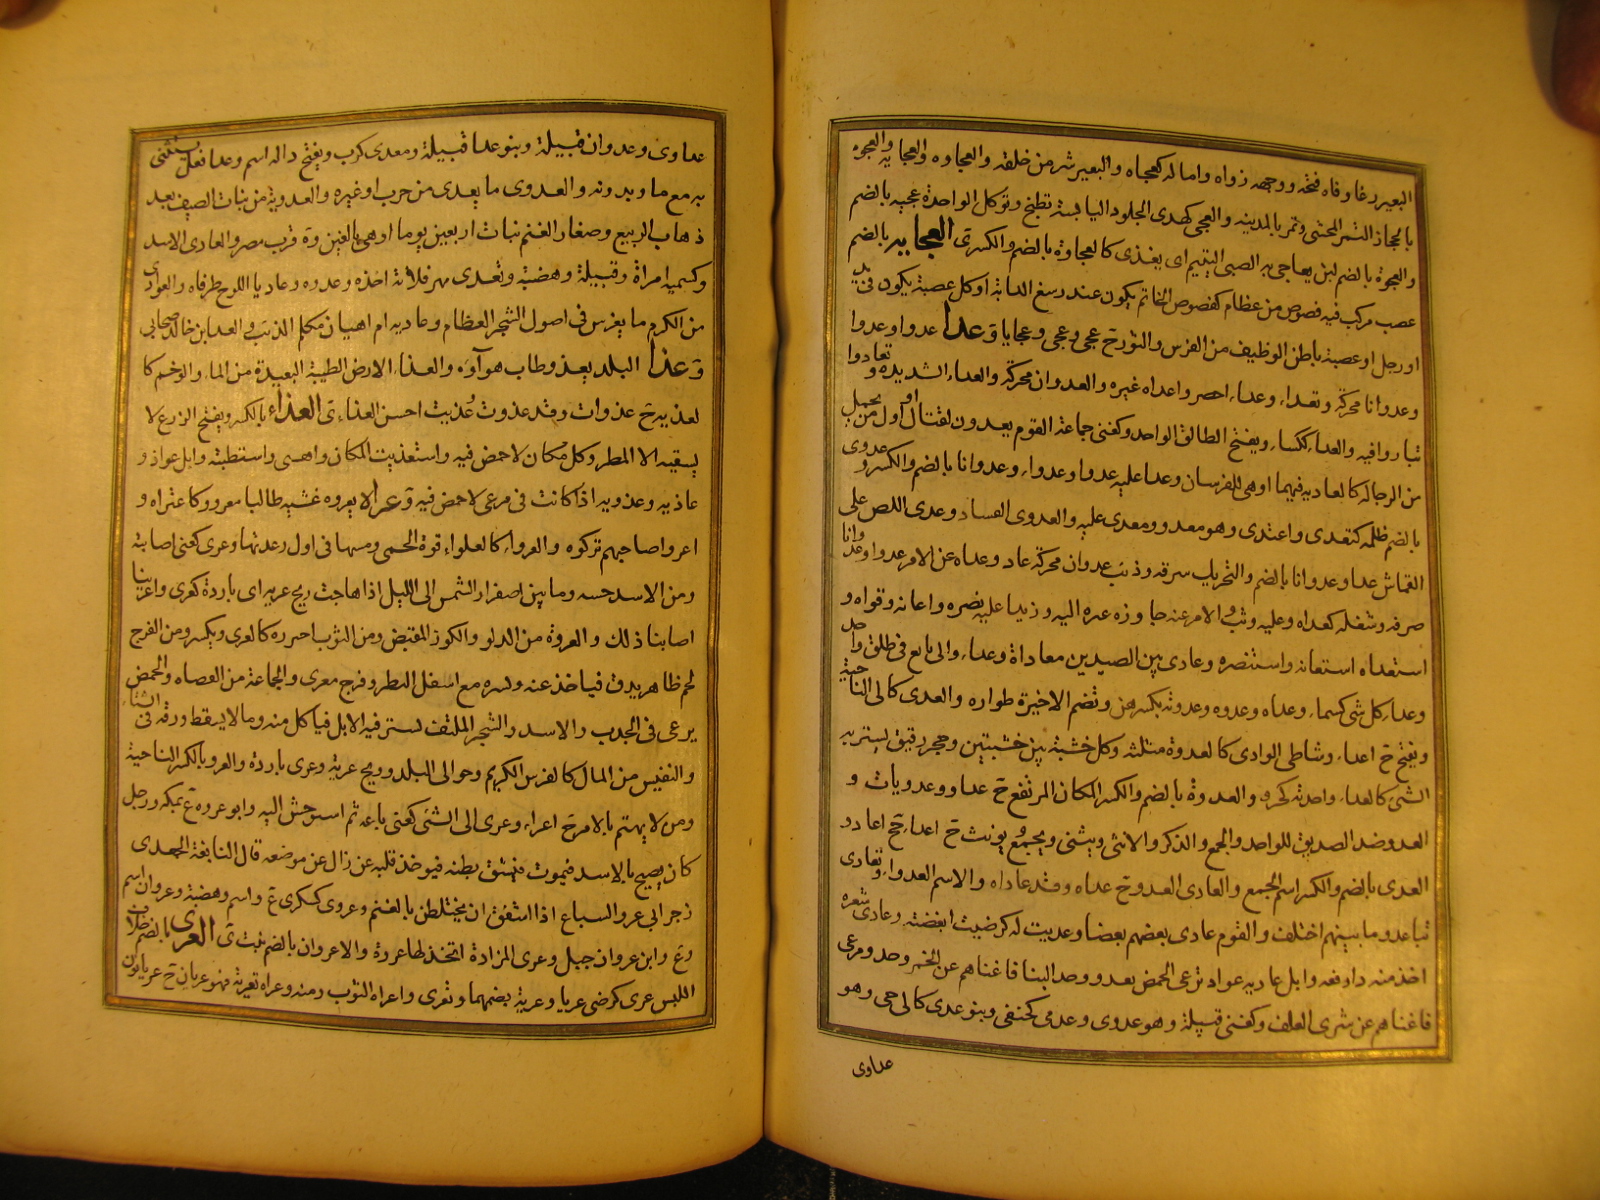 البعير رغا وفاه فتحه ووجهه زواه واماله كعجاه والبعير شرس خلقه والعجاوه والعجايه والعجوه
بالحجاز التمر المحشى وتمر بالمدينه والعجى كهدى الجلود اليابسة تطبخ وتوكل الواحدة عجيه بالضم
والعجوة بالضم لبن يعاجى به الصبى اليتيم اى يغذى كالعجاوة بالضم والكسر ى العجايه بالضم
عصب مركب فيه فصوص من عظام كفصوص الخاتم يكون عند رسغ الدابة او كل عصبة يكون فى يد
او رجل او عصبة باطن الوظيف من الفرس والثور ج عجى وعجى وعجايا و عدا عدوا وعدوا
وعدوانا محركة وتعداء وعداء احضر واعداه غيره والعدوان محركة والعداء الشديده وتعادوا
تباروا فيه والعداء ككساء ويفتح الطالق الواحد وكغنى جماعة القوم يعدون لقتال او اول من يحمل
من الرجالة كالعاديه فيهما او هى للفرسان وعدا عليه عدوا وعدوا وعدوانا بالضم والكسر وعدوى
بالضم ظلمه كتعدى واعتدى وهو معدو ومعدى عليه والعدوى الفساد وعدى اللص على
القماش عدا وعدوانا بالضم والتحريك سرقه وذئب عدوان محركة عاد وعداه عن الامر عدوا وعدوانا
صرفه وشغله كعداه وعليه وثب والامر عنه جاوزه عده اليه وزيدا عليه نصره واعانه وقواه و
استعداه استعانه واستنصره وعادى بين الصيدين معاداة وعداء والى تابع فى طلق واحد
وعداء كل شى كسماء وعداه وعدوه وعدوته بكسرهن وتضم الاخيرة طواره والعدى كالى الناحية
ويفتح ج اعداء وشاطى الوادى كالعدوة مثلثه وكل خشبة بين خشبتين وحجر رقيق يستر به
الشى كالعداء واحدته كجرو والعدوة بالضم والكسر المكان المرتفع ج عدا وعدويات و
العدو ضد الصديق للواحد والجمع والذكر والانثى ويثنى ويجمع ويونث ج اعداء جج اعاد و
العدى بالضم والكسر اسم الجمع والعادى العدو ج عداه وقد عاداه والاسم العداوه وتعادى
تباعد وما بينهم اختلف والقوم عادى بعضهم بعضا وعديت له كرضيت ابغضته وعادى شعره
اخذ منه دا رفعه وابل عاديه عواد ترعى الحمض بعدو وحد البنا فاغناهم عن الخمر وحد ومرعى
فاغناهم عن شرى العلف وكغنى قبيلة وهو عدوى وعدمى كحنفى وبنو عدى كالى حى وهو
عداوى
عداوى وعدوان قبيلة وبنو عدا قبيلة ومعدى كرب ويفتح داله اسم وعدا فعل يستثنى
به مع ما وبدونه والعدوى ما يعدى من جرب او غيره والعدوية من نبات الصيف بعد
ذهاب الربيع وصغار الغنم نبات اربعين يوما او هى بالغين وة قرب مصر والعادى الاسد
وكسميه امراة وقبيلة وهضبة وتعدى مهر فلانة اخذه وعدوه وعاديا اللوح طرفاه والعوادى
من الكرم ما يغرس فى اصول الشجر العظام وعاديه ام اهبان مكلم الذئب والعدا بن خالد صحابى
و عذا البلد يعذو طاب هوآوه والعذاء الارض الطيبة البعيدة من الماء والوخم كا
لعذيه ج عذوات وقد عذوت عذيت احسن العذاء ى العذاء بالكسر ويفتح الزرع لا
يسقيه الا المطر وكل مكان لا حمض فيه واستعذيت المكان واهسى واستطبته وابل عواذ و
عاذيه وعذويه اذا كانت فى مرعى لا حمض فيه و عرالا يعروه غشيه طالبا معروفا كاعتراه و
اعروا صاحبهم تركوه والعرواء كالغلواء قرة الحمى ومسها فى اول رعدتها وعرى كعنى اصابته
ومن الاسد حسه وما بين اصفرار الشمس الى الليل اذا هاجت ريح عريه اى باردة كعرى واعرينا
اصابنا ذلك والعروة من الدلو والكوز المقبض ومن الثوب اخت زره كالعرى ويكسر ومن الفرج
لحم ظاهر يدق فياخذ عنه ويسره مع اسفل البظر وفرج معرى والجماعة من العصاه والحمض
يرعى فى الجدب والاسد والشجر الملتف تستر فيه الابل فياكل منه وما لا يسقط ورقه فى الشتاء
والنفيس من المال كالفرس الكريم وحوالى البلد وريح عرية وعرى باردة والعرو بالكسر الناحية
ومن لا يهتم بالامر ج اعراء وعرى الى الشى كعنى باعه ثم استوحش اليه وابو عروه ع بمكة ورجل
كان يصيح بالاسد فيموت فيشق بطنه فيوخذ قلبه عن زال عن موضعه قال النابغة الجعدى
زجر ابى عرو السباع اذا اشفق ان يختلطن بالغنم وعروى كسكرى ع واسم وهضبة وعروان اسم
وع وابن عروان جبل وعرى المزادة اتخذ لها عروة والاعروان بالضم نبت ى العرى بالضم خلاف
اللبس عرى كرضى عريا وعرية بضمهما وتعرى واعراه الثوب ومنه وعراه تعرية فهو عريان ج عريانون